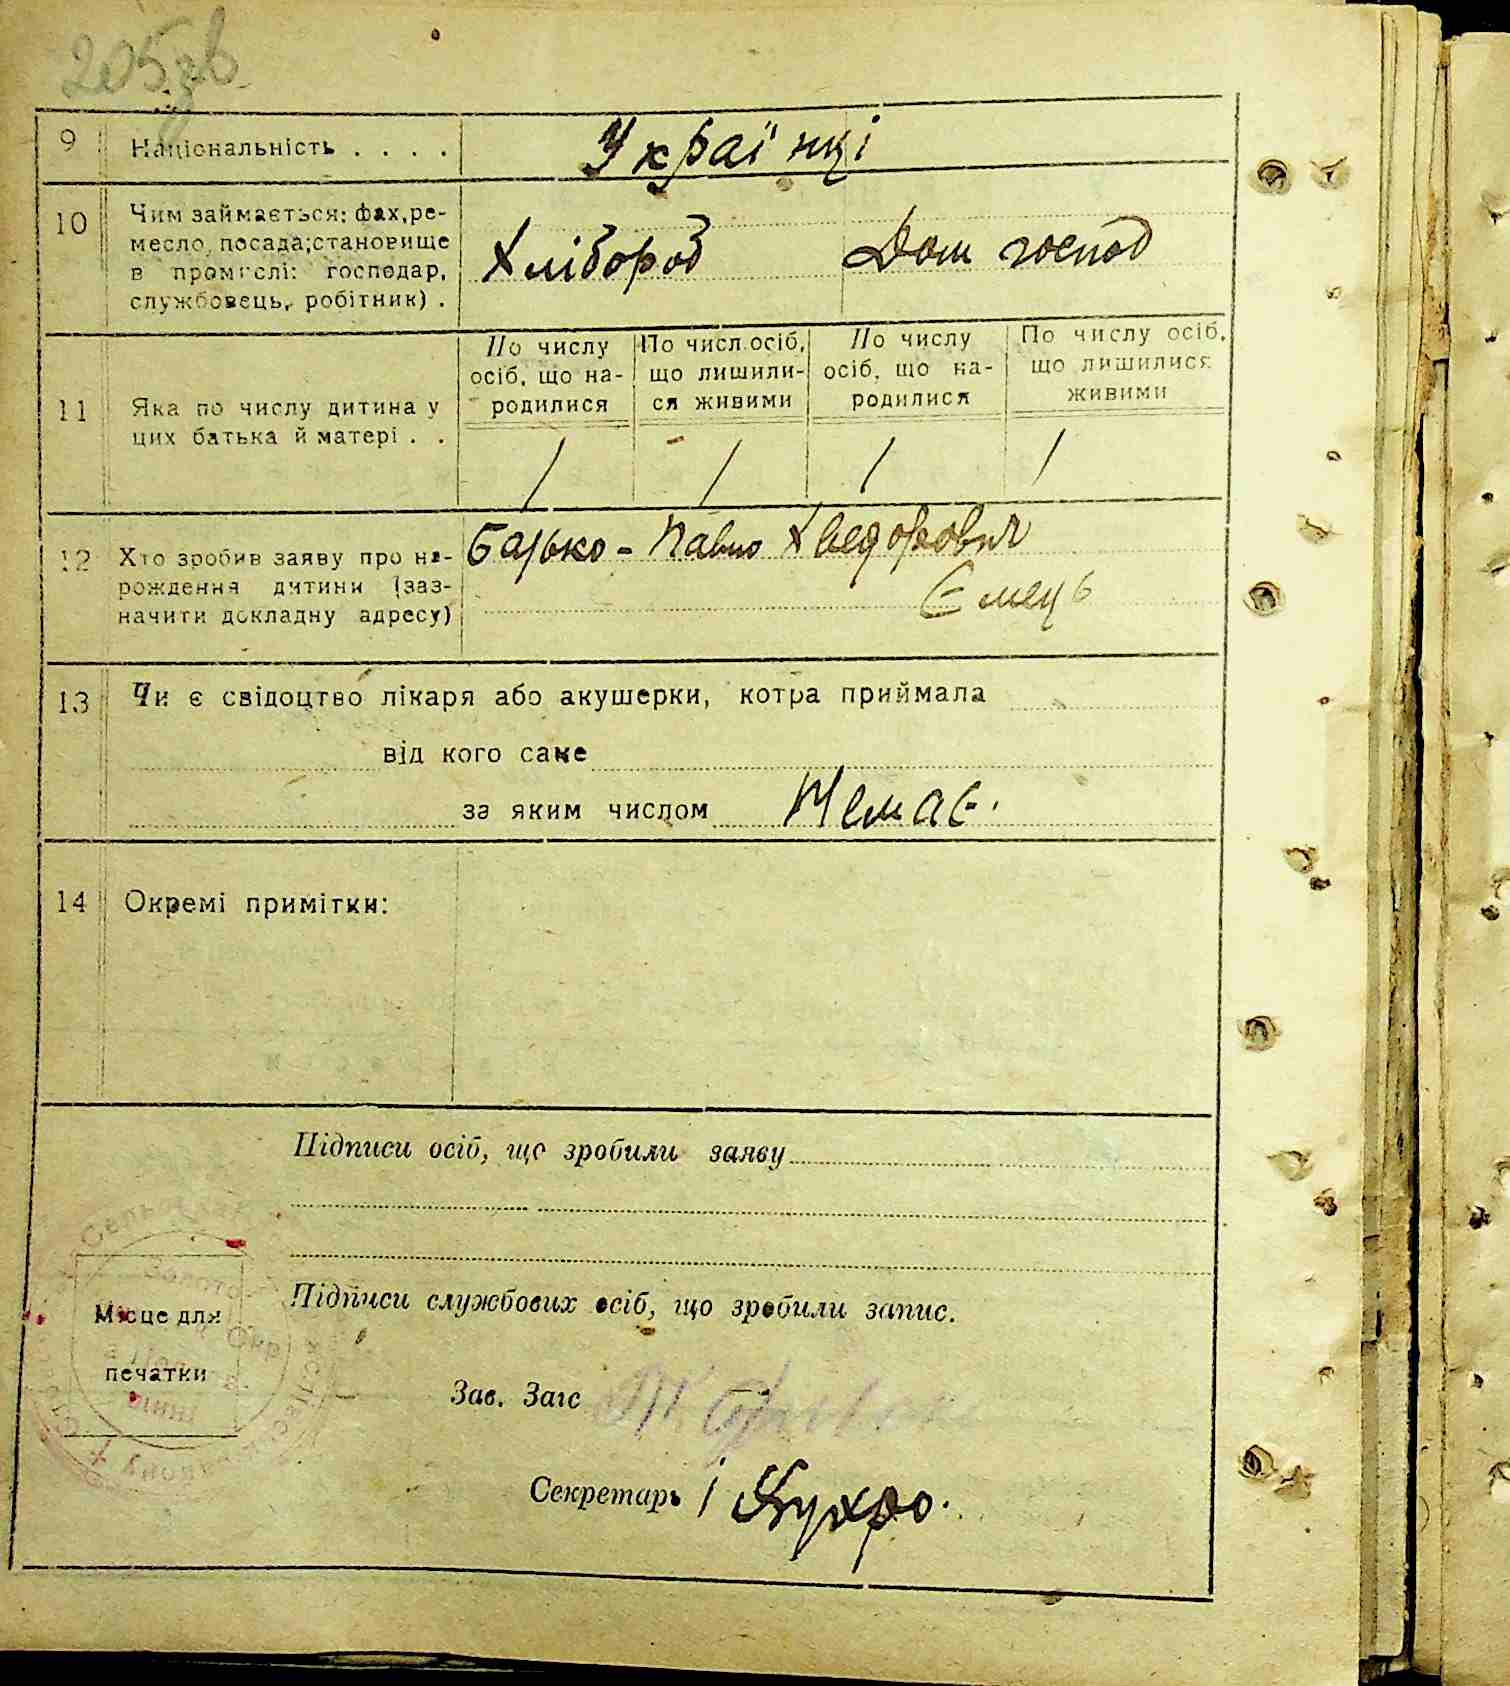 205 зв
9 Національність . . . . Українці
10 Чим займається: фах, ре-
месло, посада; становище
в промислі: господар,
службовець, робітник) .
Хлібороб Дом господ
11 Яка по числу дитина у
цих батька й матері . .
По числу
осіб, що на-
родилися
По числ. осіб,
що лишили-
ся живими
По числу
осіб, що на-
родилися
По числу осіб,
що лишилися
живими
1 1 1 1
12 Хто зробив заяву про на-
рождення дитини (заз-
начити докладну адресу)
Батько - Павло Хведорович
Ємець
13 Чи є свідоцтво лікаря або акушерки, котра приймала
від кого саме
за яким числом Немає.
14 Окремі примітки:
Підписи осіб, що зробили заяву
Місце для
печатки
Підписи службових осіб, що зробили запис.
Зав. Загс
Секретарь